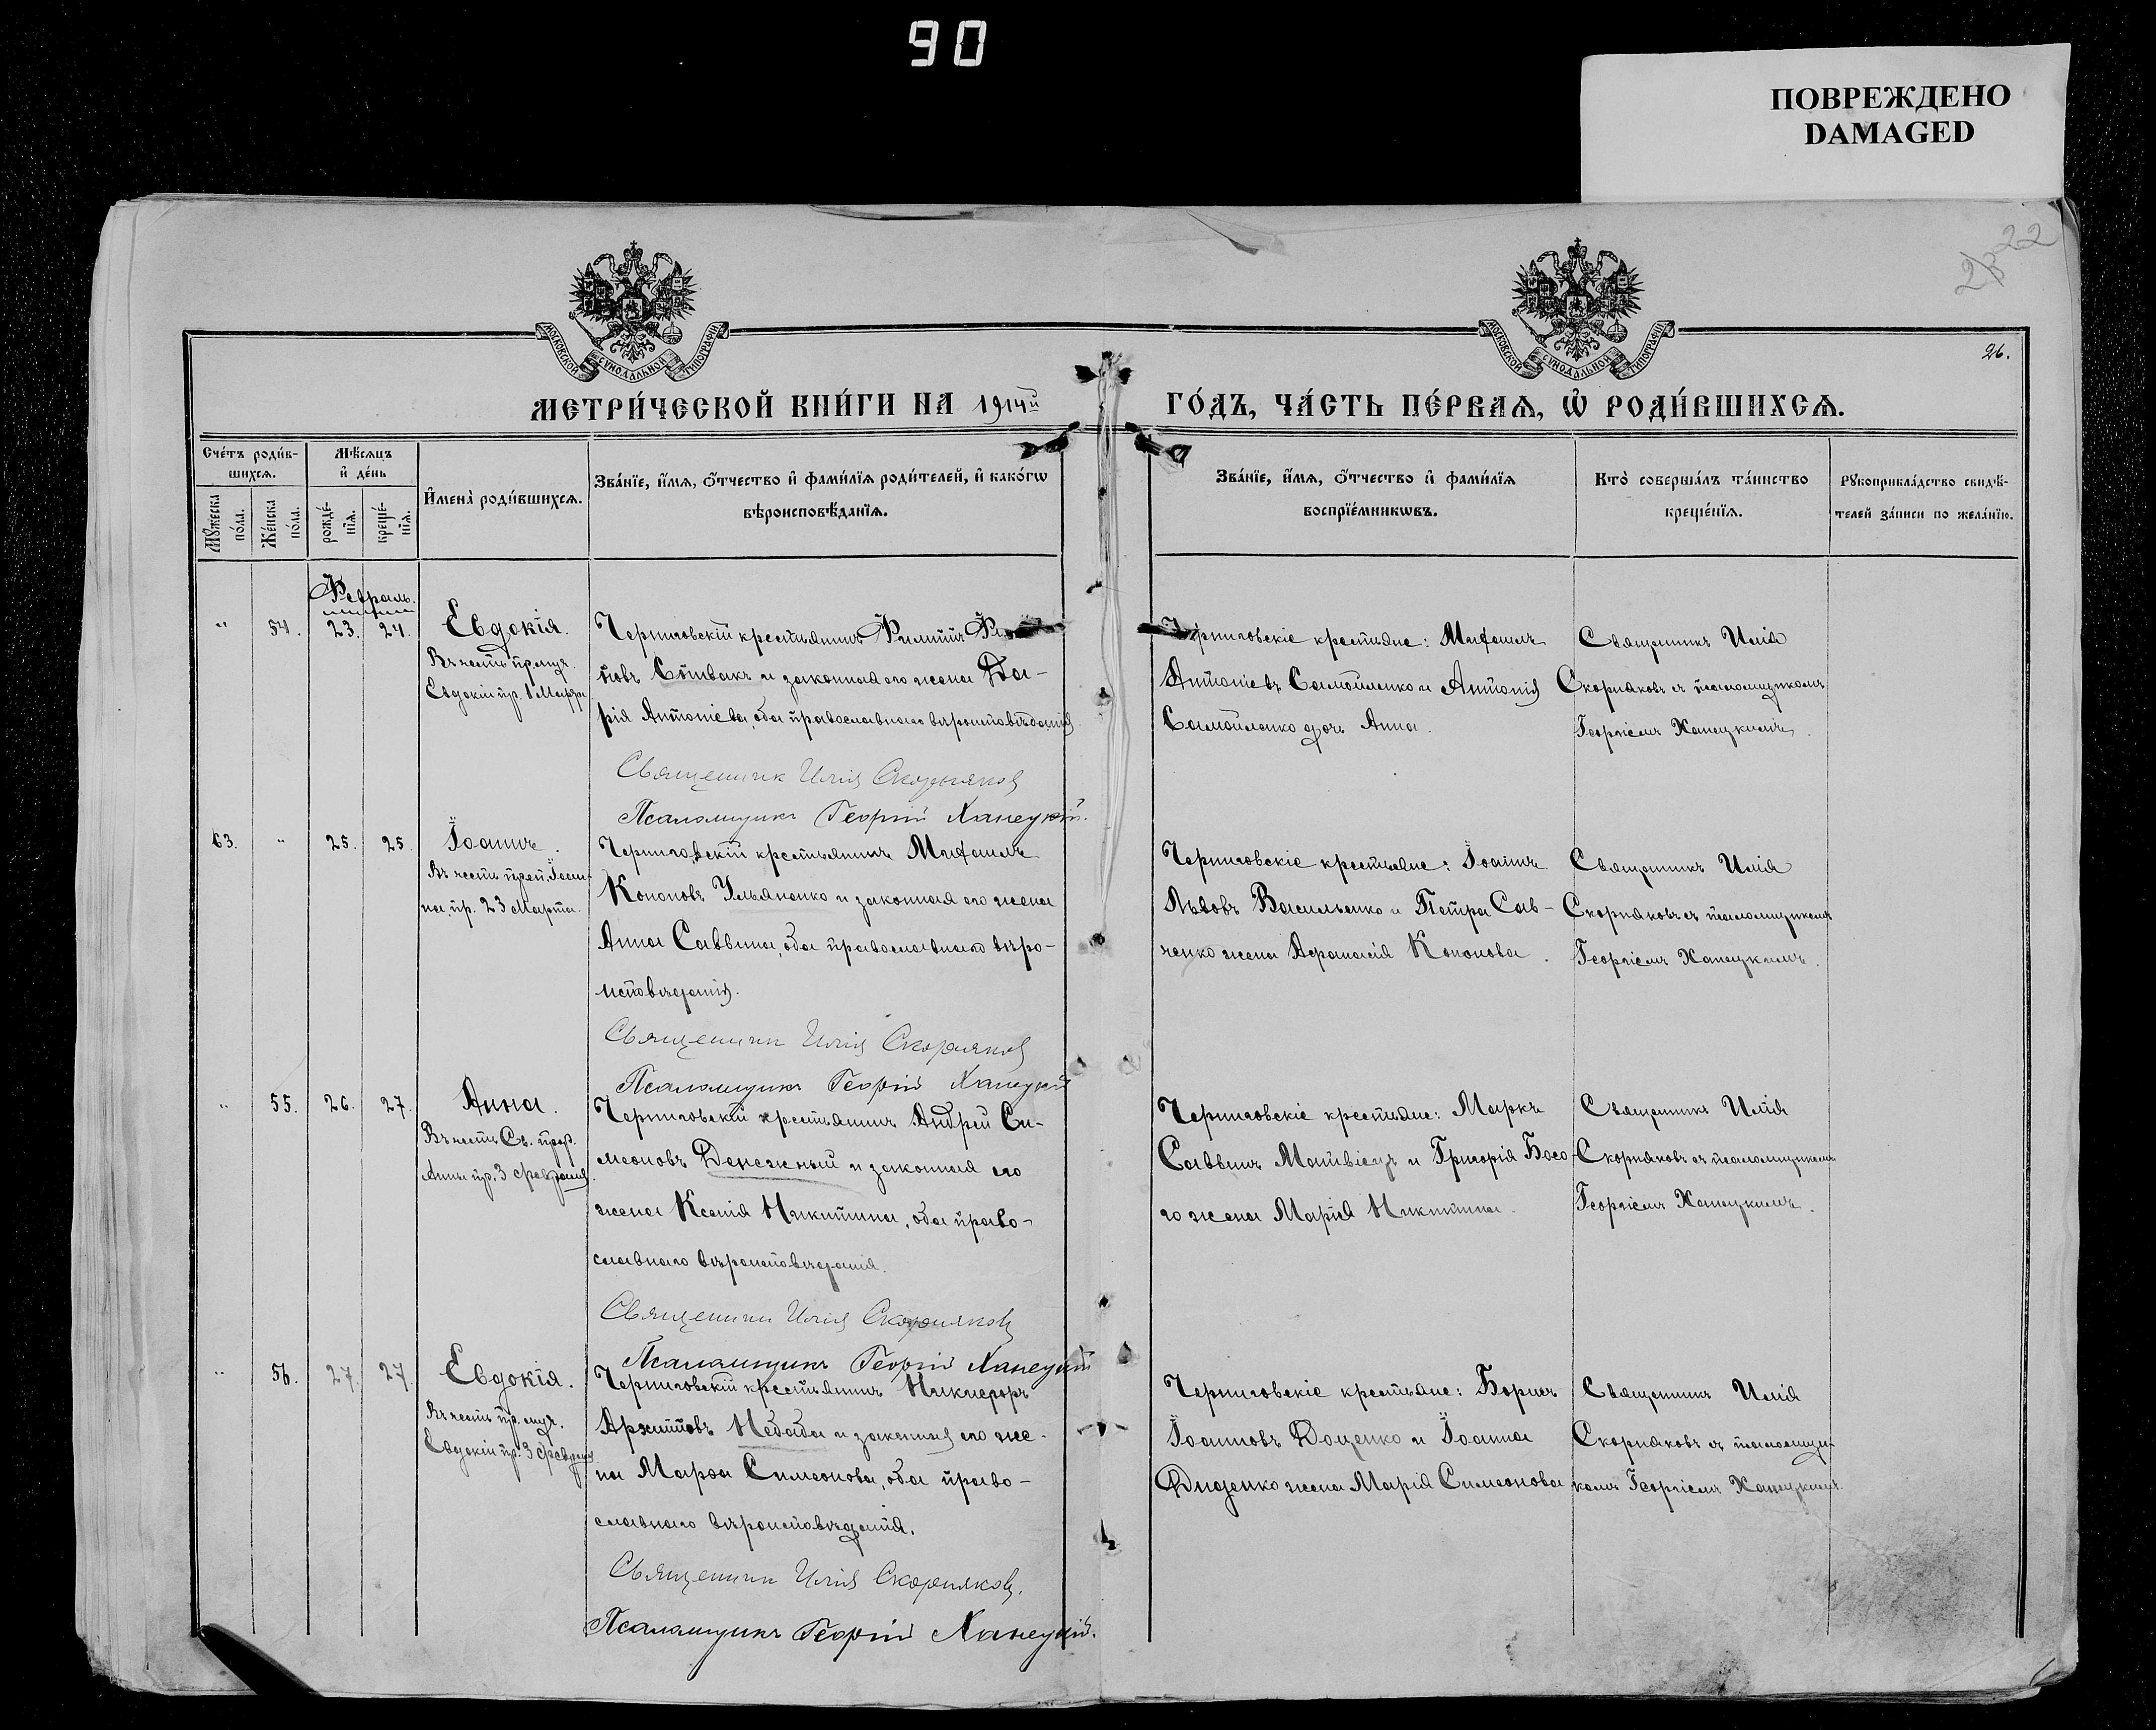 90
ПОВРЕЖДЕНО
DAMAGED
22
23
26.
МОСКОВСКОЙ СУНОДАЛЬНОЙ ТИПОГРАФІИ
МОСКОВСКОЙ СУНОДАЛЬНОЙ ТИПОГРАФІИ
МЕТРИ́ЧЕСКОЙ КНИ́ГИ НА 1914й ГО́ДЪ, ЧА́СТЬ ПЕ́РВАѦ, Ѽ РОДИ́ВШИХСѦ.
Сче́тъ роди́в-
шихсѧ.
Мꙋ́жеска по́ла.
Же́нска по́ла.
Мѣ́сѧцъ
и҆ де́нь
рожде́-
нїѧ.
креще́-
нїѧ.
И҆мена̀ роди́вшихсѧ.
Зва́нїе, и҆́мѧ, ѻ҆́тчество и҆ фами́лїѧ роди́телей, и҆ како́гѡ
вѣроисповѣ́данїѧ.
Зва́нїе, и҆́мѧ, ѻ҆́тчество и҆ фами́лїѧ
воспрїе́мникѡвъ.
Кто̀ соверша́лъ та́инство
креще́нїѧ.
Рꙋкоприкла́дство свидѣ́-
телей за́писи по жела́нїю.
Февраль.
" 54. 23. 24. Евдокія.
Въ честь пр. муч.
Евдокіи пр. 1 Марта
Черниговскій крестьянинъ Филиппъ
повъ Спивакъ и законная его жена Да-
рія Антоніева, оба православнаго вѣроисповѣданія
Священник Илія Скорняков
Псаломщикъ Георгій Ханецкій.
Черниговскіе крестьяне: Михаилъ
Антоніевъ Самойленко и Антонія
Самойленко дочь Анна.
Священникъ Илія
Скорняковъ съ псаломщикомъ
Георгіемъ Ханецкимъ.
63. " 25. 25. Іоаннъ.
Въ честь преп. Іоан-
на, пр. 23 Марта.
Черниговскій крестьянинъ Михаилъ
Кононовъ Ульяненко и законная его жена
Анна Саввина, оба православнаго вѣро-
исповѣданія.
Священник Илія Скорняков
Псаломщикъ Георгій Ханецкій
Черниговскіе крестьяне: Іоаннъ
Львовъ Васильенко и Петра Сав-
ченко жена Афанасія Кононова.
Священникъ Илія
Скорняковъ съ псаломщикомъ
Георгіемъ Ханецкимъ.
" 55. 26. 27. Анна.
Въ честь Св. прор.
Анны пр. 3 февраля
Черниговскій крестьянинъ Андрей Си-
меоновъ Денежный и законная его
жена Ксенія Никитина, оба право-
славнаго вѣроисповѣданія.
Священник Илія Скорняков
Псаломщикъ Георгій Ханецкій
Черниговскіе крестьяне: Маркъ
Саввинъ Матвіецъ и Григорія Босо-
го жена Марія Никитина.
Священникъ Илія
Скорняковъ съ псаломщикомъ
Георгіемъ Ханецкимъ.
" 56. 27. 27. Евдокія.
Въ честь пр. муч.
Евдокіи пр. 3 февраля
Черниговскій крестьянинъ Никифоръ
Архиповъ Небаба и законная его же-
на Марѳа Симеонова, оба право-
славнаго вѣроисповѣданія.
Священник Илія Скорняков.
Псаломщикъ Георгій Ханецкій.
Черниговскіе крестьяне: Борисъ
Іоанновъ Доценко и Іоанна
Диденко жена Марія Симеонова
Священникъ Илія
Скорняковъ съ псаломщи-
комъ Георгіемъ Ханецкимъ.